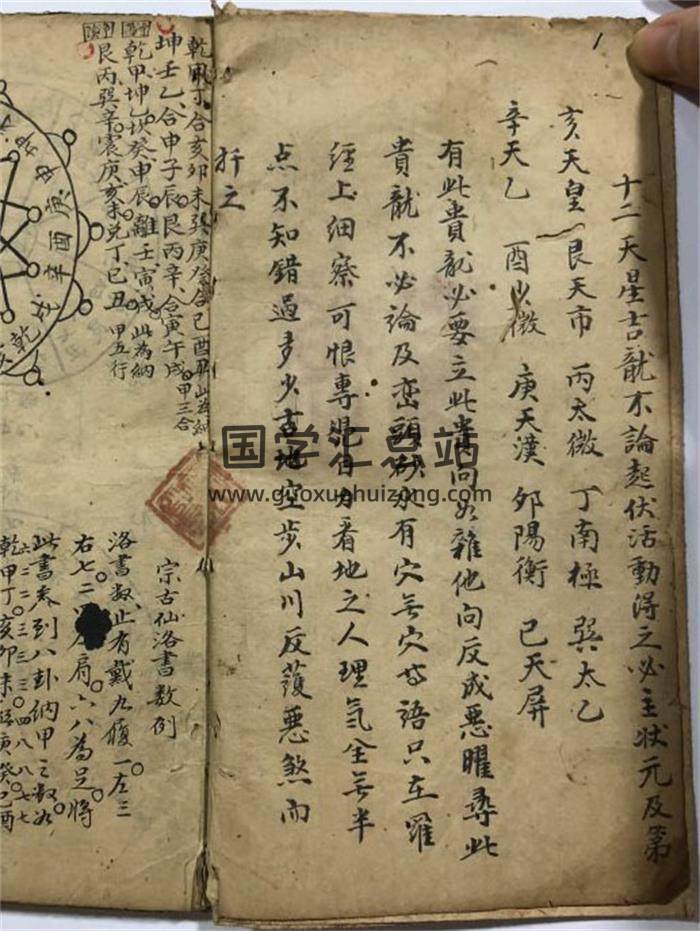 1
十二天星吉龍不論起伏活動得之必主狀元及第
亥天皇 艮天市 丙太微 丁南極 巽太乙
辛天乙 酉少微 庚天漢 夘陽衡 巳天屏
有此貴龍必要立此貴向如雜他向反成惡曜尋此
貴龍不必論及峦頭砂水有穴無穴等語只在羅
經上細察可恨專凭自分看地之人理氣全無半
点不知錯過多少吉地空步山川反護惡煞而
折之
国学汇总站
www.guoxuehuizong.com
乾甲丁合亥卯未巽庚癸合巳酉丑
坤壬乙合申子辰艮丙辛合寅午戌 甲三合
乾甲坤乙坎癸申辰離壬寅戌此為納
艮丙巽辛震庚亥未兑丁巳丑 甲五行
申 庚 酉 辛 乾
宗古仙洛書数例
洛書数止有戴九履一左三
右七二四為肩六八為足將
此書奏到八卦納甲之数如
六二二三三四八八七七
乾甲丁亥卯未巽庚癸巳酉